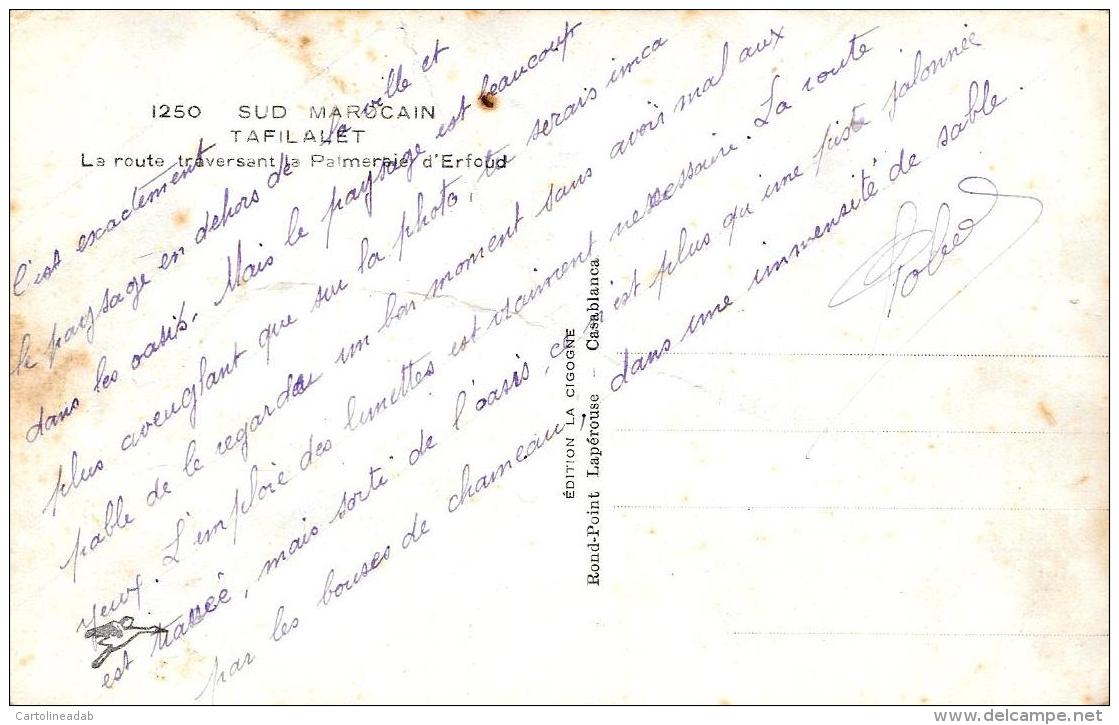 1250 SUD MAROCAIN
TAFILALET
La route traversant la Palmeraie d'Erfoud
C'est exactement
le paysage en dehors de la ville et
dans les oasis. Mais le paysage est beaucoup
plus aveuglant que sur la photo, tu serais inca
pable de le regarder un bon moment sans avoir mal aux
yeux. L'emploie des lunettes est vraiment nessessaire. La route
est tracée, mais sorti de l'oasis, ce n'est plus qu'une piste jalonnée
par les bouses de chameau, dans une immensité de sable.
ÉDITION LA CIGOGNE
Rond-Point Lapérouse - Casablanca
Cartolineadab
delcampe.net